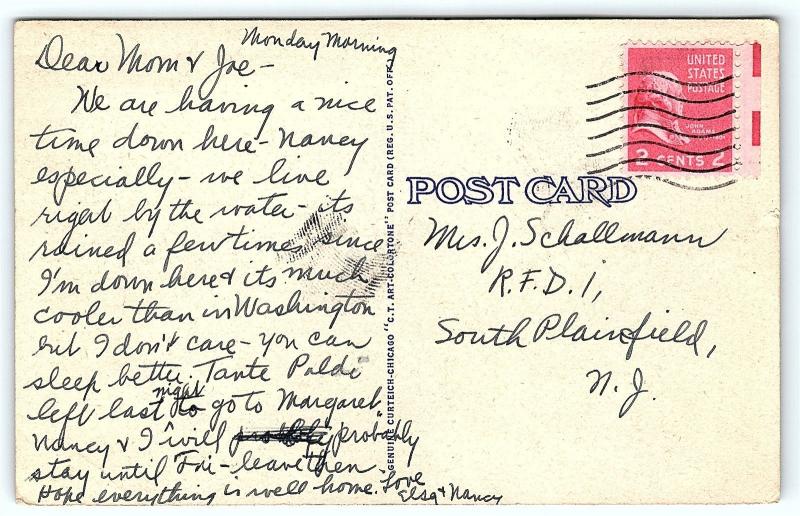 Monday Morning
Dear Mom & Joe -
We are having a nice
time down here - Nancy
especially - we live
right by the water - its
rained a few times since
I'm down here & its much
cooler than in Washington
but I don't care - you can
sleep better. Tante Paldi
left last night to go to Margaret,
Nancy & I will probably
stay until Fri - leave then.
Hope everything is well home. Love
Elsa & Nancy
GENUINE CURTEICH-CHICAGO "C.T. ART-COLORTONE" POST CARD (REG. U.S. PAT. OFF.)
UNITED
STATES
POSTAGE
JOHN
ADAMS
2 CENTS 2
POST CARD
Mrs. J. Schallmann
R.F.D. 1,
South Plainfield,
N. J.